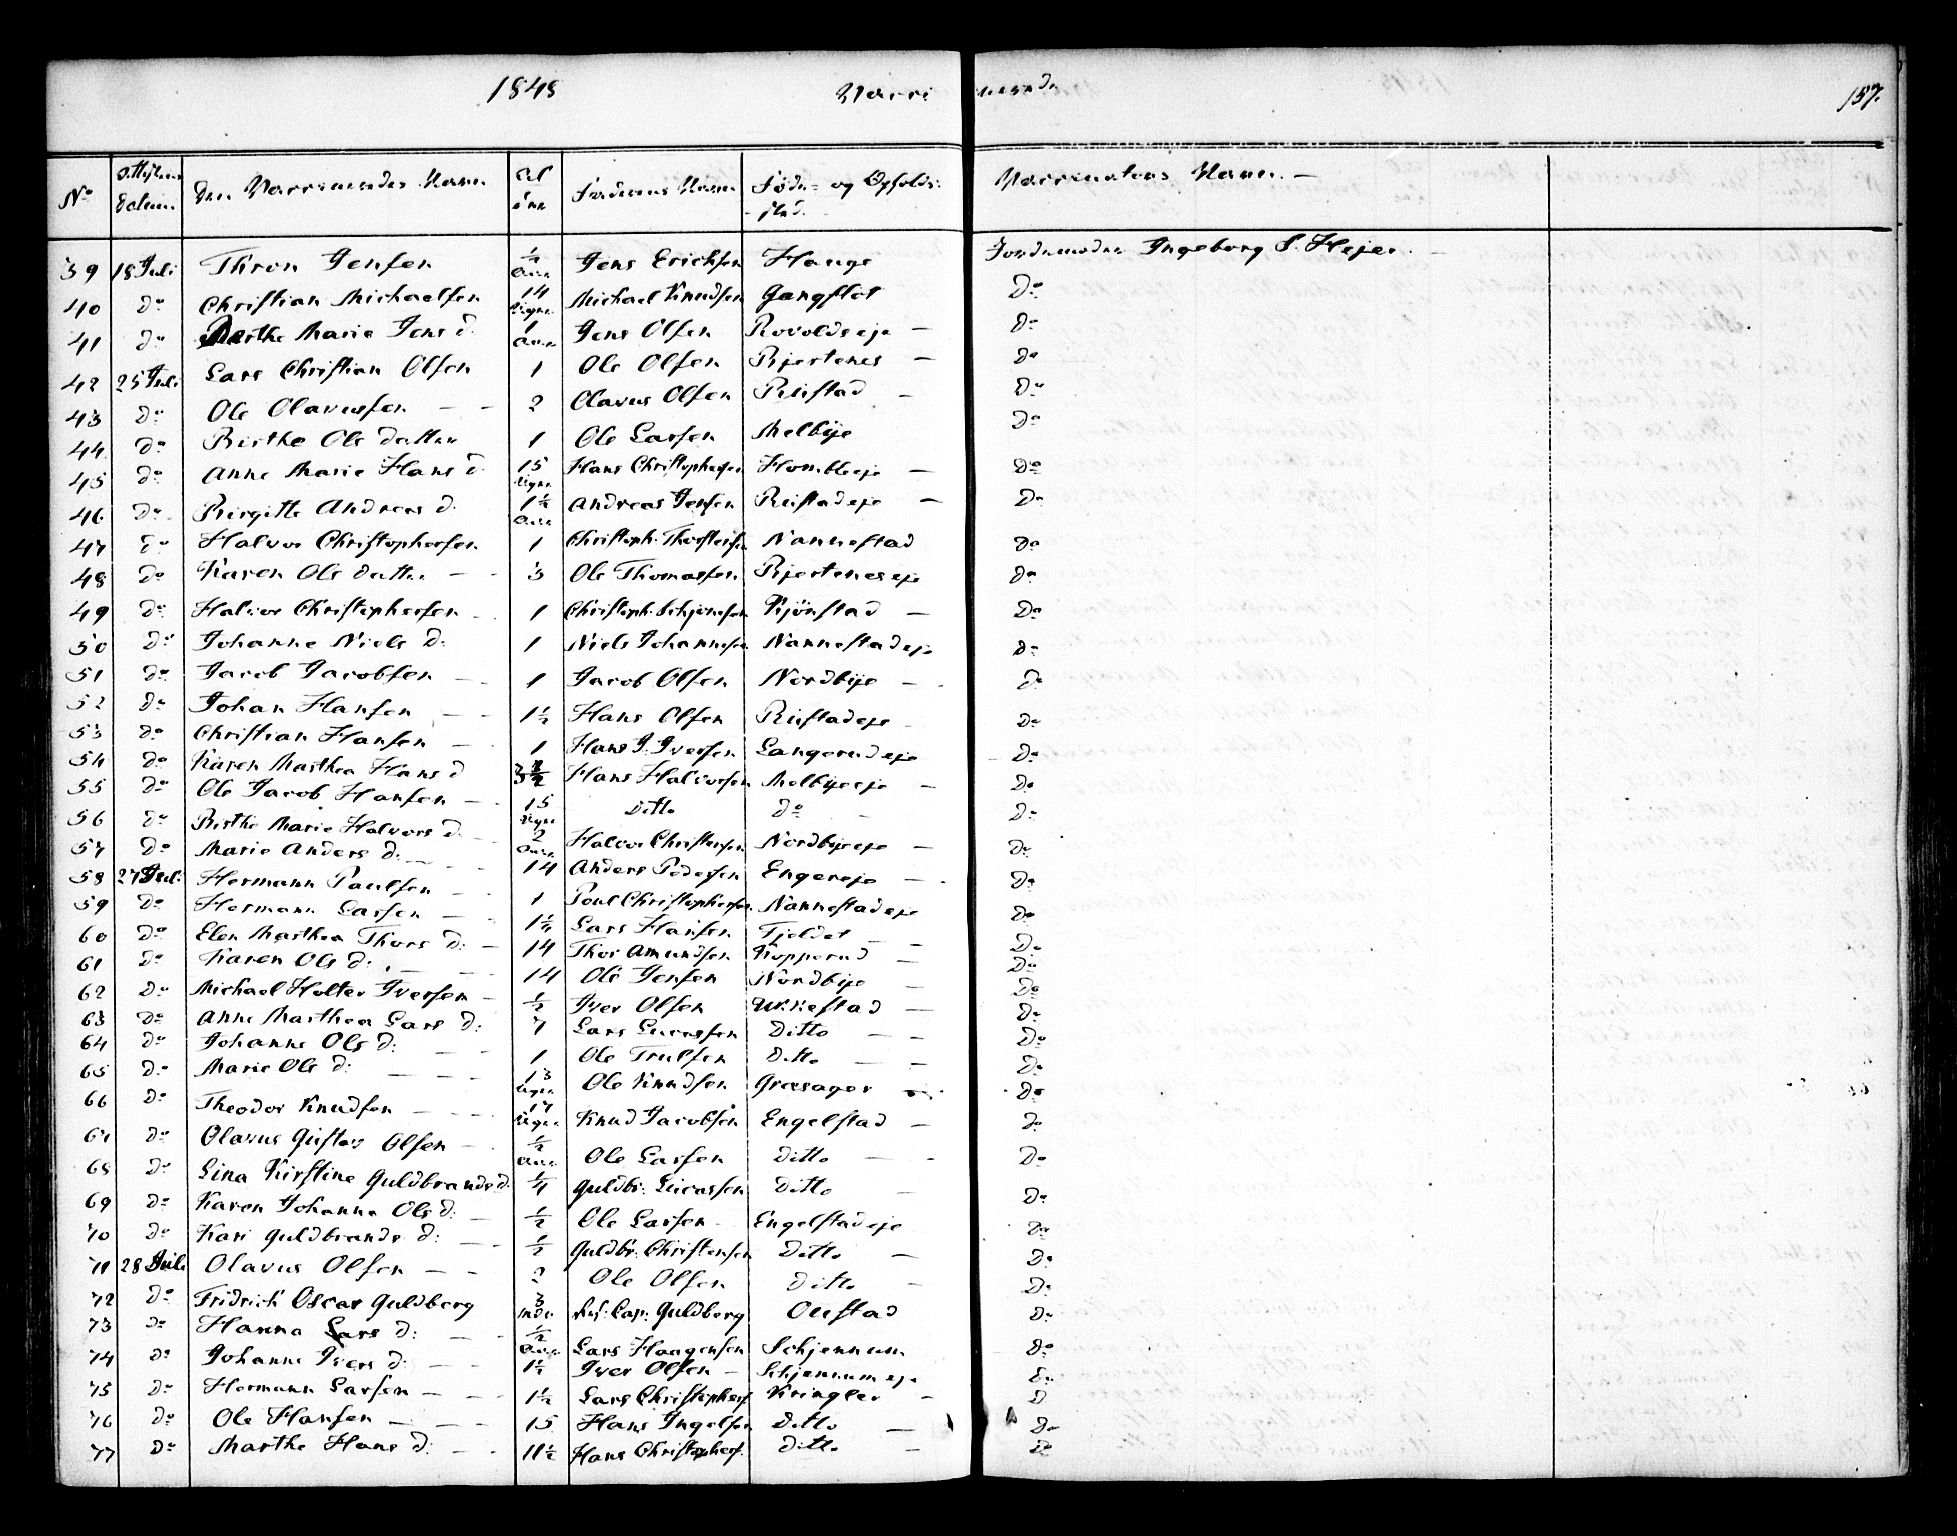 1848 Vacci nerede 157.
No Attestens Datum. Den Vaccineredes Navn Al der Faderens Navn Føde- og Opholds- sted. Vaccinateurs Navn. —
39 18 Juli Thron Jensen ½ Aar Jens Erichsen Hauge Jordemoder Ingeborg S. Hejer. —
40 Do Christian Michaelsen 14 Uger Michael Knudsen Gangflot Do
41 Do Marthe Marie Jens d. 1 Aar Jens Olsen Rovoldseje — Do
42 25 Juli Lars Christian Olsen 1 Ole Olsen Bjertenes — Do
43 Do Ole Olavussen — - 2 Olavus Olsen Riistad - Do
44 Do Birthe Ole datter 1 Ole Larsen Melbye Do
45 Do Anne Marie Hans d. 15 Uger Hans Christophersen Hombleeje — Do
46 Do Birgitte Andreas d. 1½ Aar Andreas Jensen Riistadeje — Do
47 Do Halvor Christophersen 1 Christoph. Thorstensen Nannestad Do
48 Do Karen Ole datter — - 3 Ole Thomassen Bjerteneseje Do
49 Do Halvor Christophersen - 1 Christoph. Schjønsen Kjønstad — Do
50 Do Johanne Niels d: 1 Niels Johannesen Nannestadeje Do
51 Do Jacob Jacobsen — - 1 Jacob Olsen Nordbye — Do
52 Do Johan Hansen — - 1½ Hans Olsen Riistadeje - Do
53 Do Christian Hansen — 1 Hans J. Iversen Langerudeje Do
54 Do Karen Marthea Hans d 3½ Hans Halvorsen Melbyeeje — Do
55 Do Ole Jacob Hansen — - 15 Uger Ditto Do - Do
56 Do Birthe Marie Halvors d. - 2 Aar Halvor Christensen Nordbyeeje — Do
57 Do Marie Anders d: — - 14 Anders Pedersen Engereje — Do
58 27 Juli Hermann Paulsen — - 1 Poul Christophersen Nannestadeje Do
59 Do Hermann Larsen — - 1½ Lars Hansen Tjeldet — - Do
60 Do Elen Marthea Thors d: — 14 Thor Amundsen Kopperud — Do
61 Do Karen Ols d: — — 14 Ole Jensen Nordbye — Do
62 Do Michael Holter Iversen - ½ Iver Olsen Ukkestad — Do
63 Do Anne Marthea Lars d: 7 Lars Lucassen Ditto — - Do
64 Do Johanne Ols d: — - 1 Ole Trulsen Ditto — - Do
65 Do Marie Ole d: — — - 13 Uger Ole Knudsen Græsager — Do
66 Do Theodor Knudsen — - - 17 Uger Knud Jacobsen Engelstad — Do
67 Do Olavus Gustav Olsen - ½ Aar Ole Larsen Ditto — - Do
68 Do Lina Kirstine Guldbrands d. ¼ Guldbr: Lucassen Ditto - Do
69 Do Karen Johanne Ols d: - ½ Ole Larsen - Engelstadeje Do
70 Do Kari Guldbrands d: — - ½ Guldbr: Christensen Ditto — Do
71 28 Juli Olavus Olsen — - 2 Ole Olsen Ditto - Do
72 Do Fridrich Oscar Guldberg 3 Mdr. Guldberg Oustad Do
73 Do Hanna Lars d: — - ½ Aar Lars Haagensen Schjennum Do
74 Do Johanne Ivers d: — - 1½ Iver Olsen — Schjennumeje Do
75 Do Hermann Larsen — - - 1½ Lars Christophers. Kringler - D
76 Do Ole Hansen — — - 15 Hans Ingelsen Ditto — Do
77 Do Marthe Hans d: — - 11½ Hans Christophers. Ditto — Do